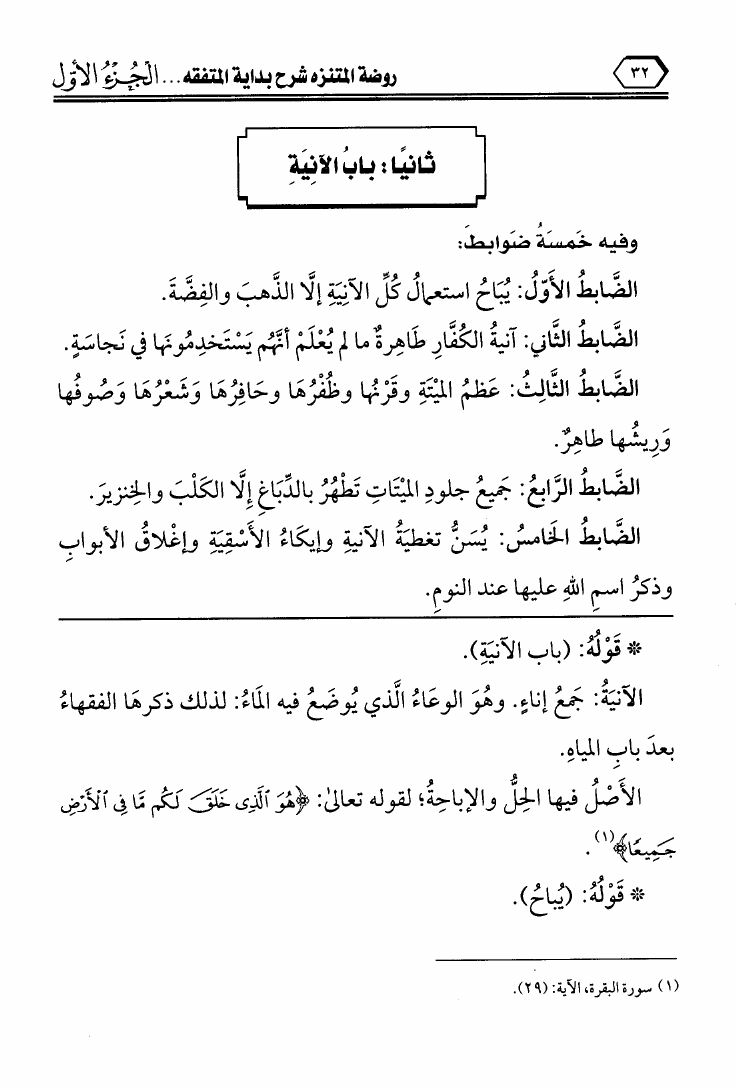 ٣٢ روضة المتنزه شرح بداية المتفقه ... الجُزْءُ الأوّل
ثانيًا: بابُ الآنِيَةِ
وفيه خَمسَةُ ضَوابطَ:
الضَّابطُ الأوّلُ: يُبَاحُ استعمالُ كُلِّ الآنِيَةِ إلَّا الذَّهبَ والفِضَّةَ.
الضَّابطُ الثَّاني: آنيةُ الكُفَّارِ طَاهِرةٌ ما لم يُعْلَمْ أنَّهُم يَسْتَخدِمُونَها في نَجاسَةٍ.
الضَّابطُ الثَّالِثُ: عَظمُ الميْتَةِ وقَرْنُها وظُفْرُهَا وحَافِرُهَا وَشَعْرُهَا وَصُوفُها
وَرِيشُها طاهِرٌ.
الضَّابطُ الرَّابعُ: جَميعُ جلودِ الميْتَاتِ تَطْهُرُ بالدِّبَاغِ إِلَّا الكَلْبَ والخِنزيرَ.
الضَّابطُ الخَامسُ: يُسَنُّ تغطيَةُ الآنيةِ وإيكَاءُ الأَسْقِيَةِ وإغْلاقُ الأبوابِ
وذكرُ اسمِ اللهِ عليها عند النومِ.
* قَوْلُهُ: (باب الآنيَةِ).
الآنيَةُ: جَمعُ إناءٍ. وهُوَ الوعَاءُ الَّذي يُوضَعُ فيه المَاءُ: لذلك ذكرهَا الفقهاءُ
بعدَ بابِ المياهِ.
الأَصْلُ فيها الحِلُّ والإباحةُ؛ لقوله تعالىٰ: ﴿هُوَ ٱلَّذِى خَلَقَ لَكُم مَّا فِى ٱلْأَرْضِ
جَمِيعًا﴾(١).
* قَوْلُهُ: (يُباحُ).
(١) سورة البقرة، الآية: (٢٩).